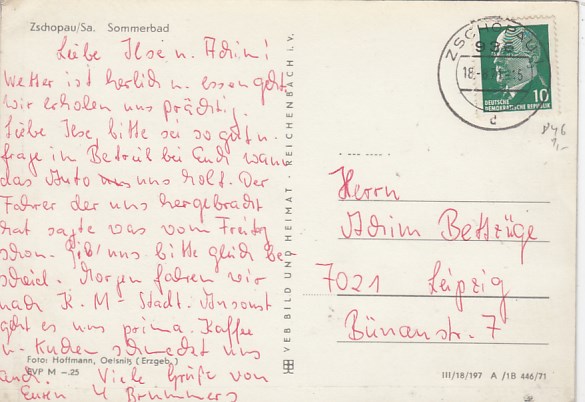 Zschopau/Sa. Sommerbad
Liebe Ilse u. Achim!
Wetter ist herlich u. essen geht
wir erholen uns prächtig.
Liebe Ilse, bitte sei so gut u.
frage im Betrieb bei Euch wann
das Auto uns holt. Der
Fahrer der uns hergebracht
hat sagte was vom Freitag
schon. Gib' uns bitte gleich be-
scheid. Morgen fahren wir
nach K. M- Stadt. Ansonst
geht es uns prima. Kaffee
u. Kuchen schmeckt uns
auch. Viele Grüße von
Euren 4 Brummers
Foto: Hoffmann, Oelsnitz (Erzgeb.)
EVP M -.25
VEB BILD UND HEIMAT · REICHENBACH i. V.
ZSCHOPAU
936
18.
10
DEUTSCHE
DEMOKRATISCHE REPUBLIK
Herrn
Achim Bettzüge
7021 Leipzig
Bünaustr. 7
III/18/197 A /1B 446/71